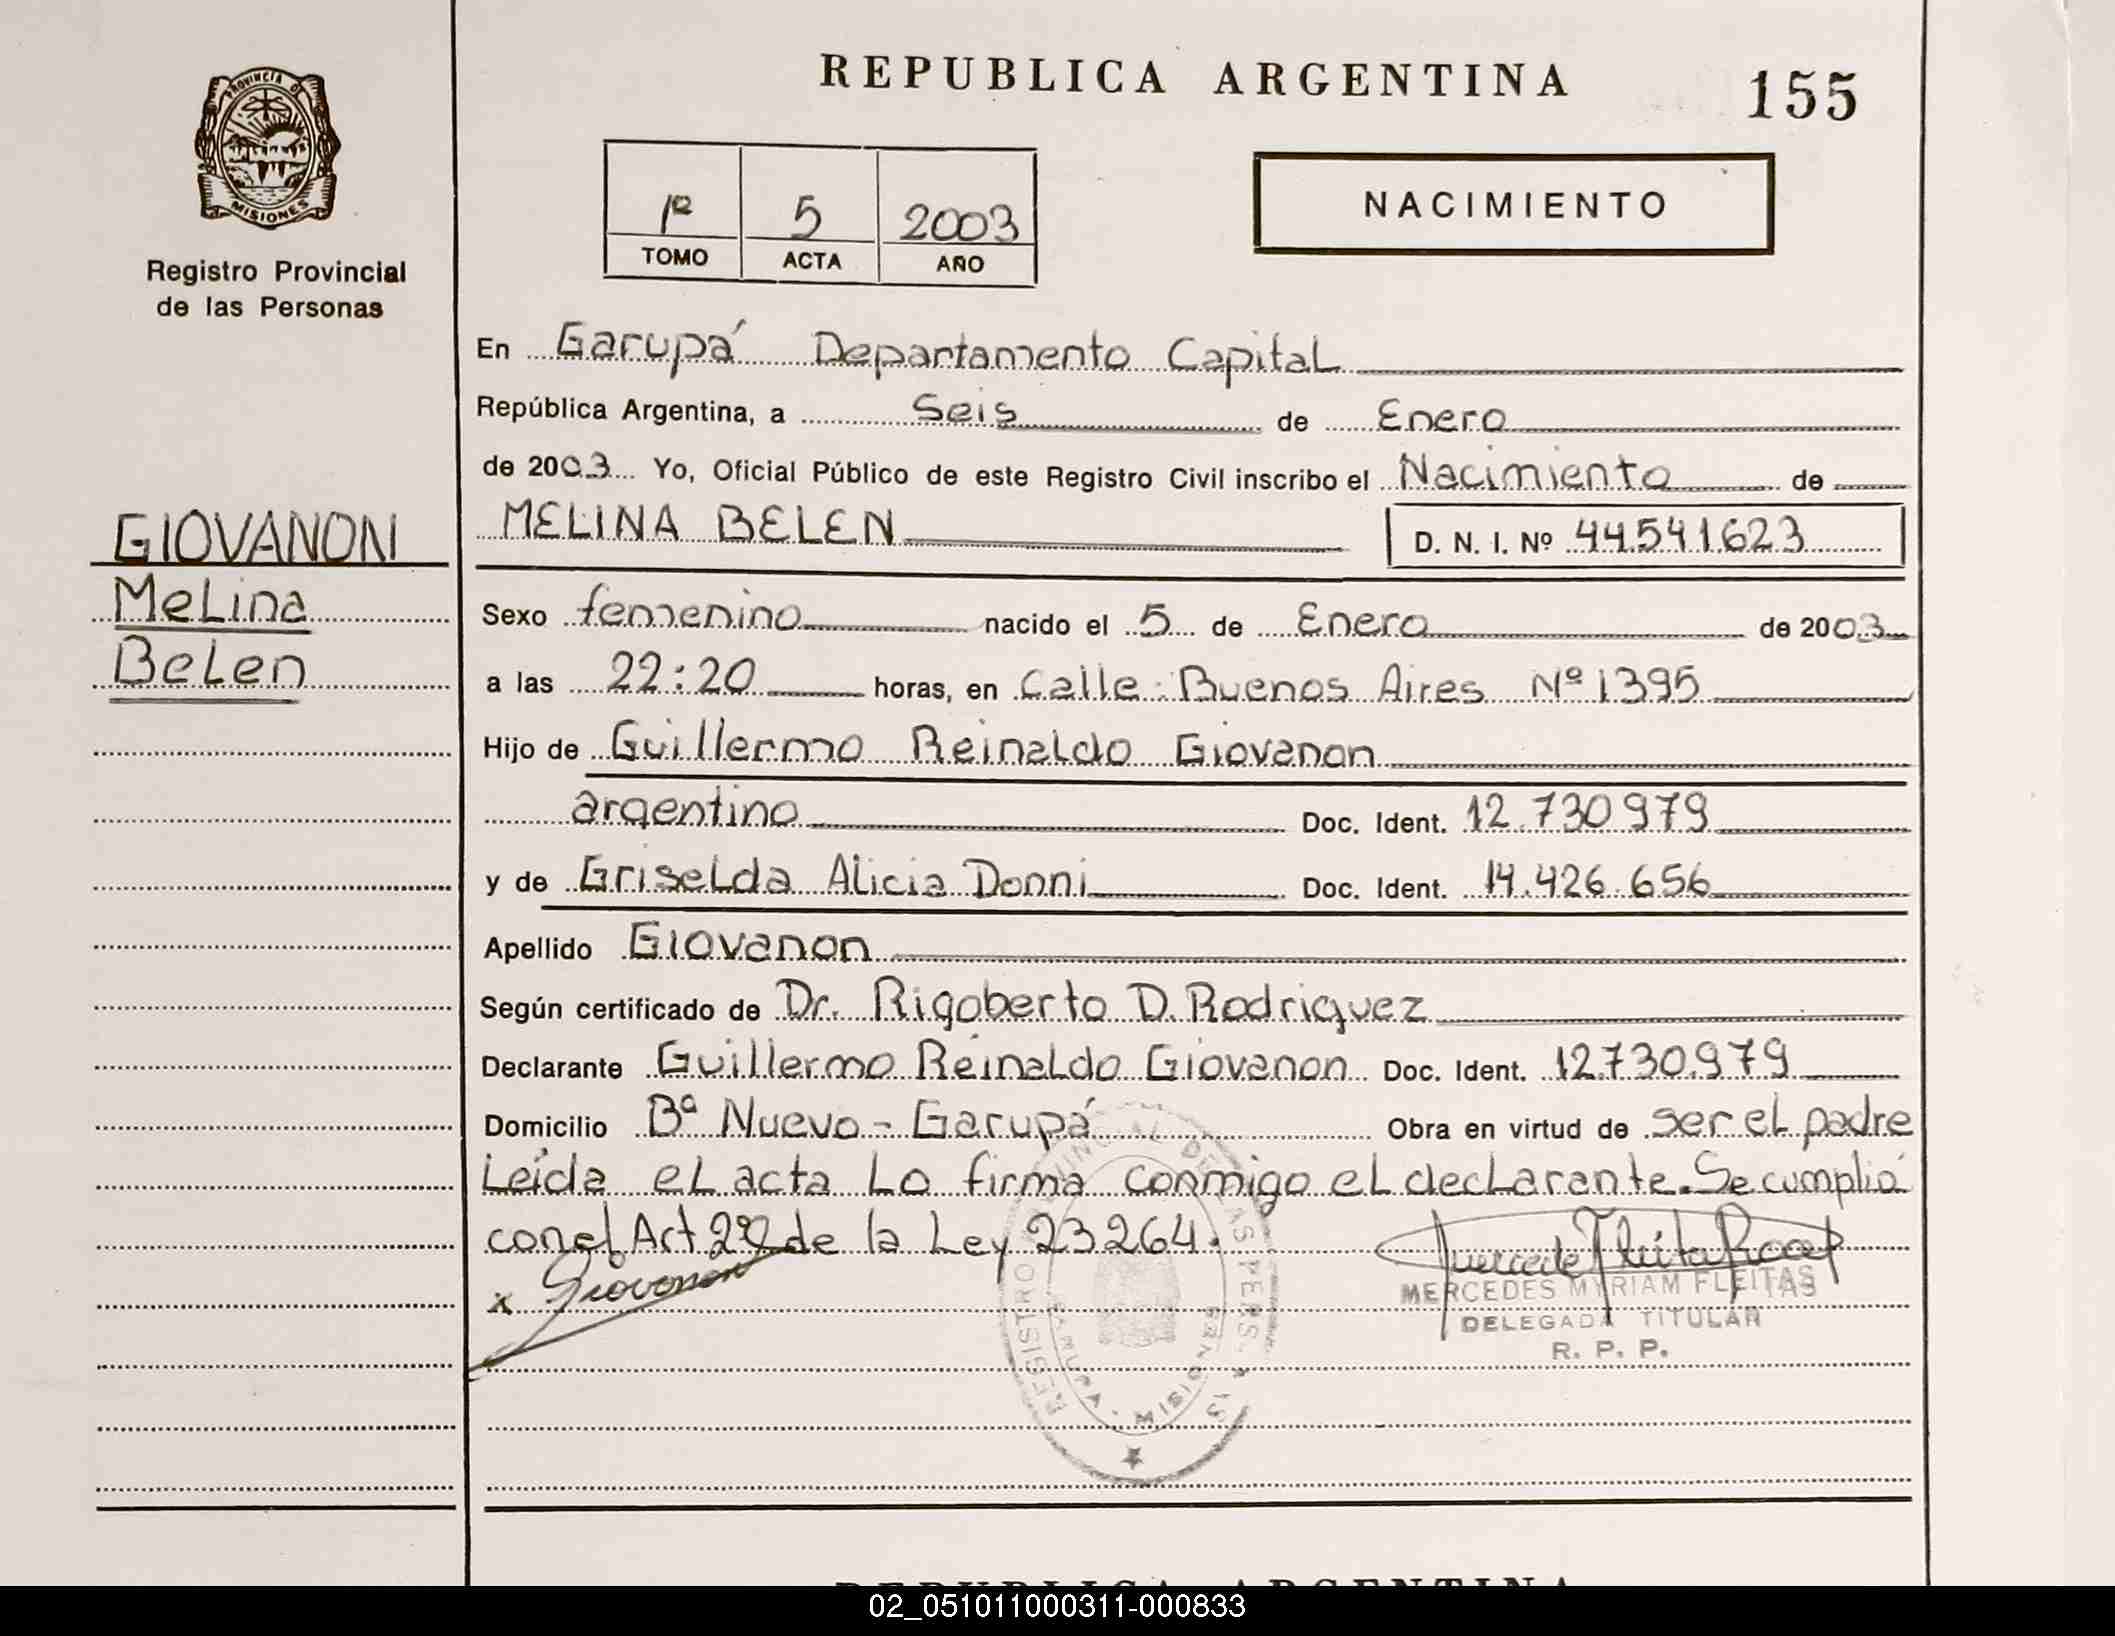 REPUBLICA ARGENTINA
155
PROVINCIA DE
MISIONES
Registro Provincial
de las Personas
1º 5 2003
TOMO ACTA AÑO
NACIMIENTO
En Garupá Departamento Capital
República Argentina, a Seis de Enero
de 2003 Yo, Oficial Público de este Registro Civil inscribo el Nacimiento de
GIOVANON
Melina
Belen
MELINA BELEN D. N. I. Nº 44.541.623
Sexo femenino nacido el 5 de Enero de 2003
a las 22:20 horas, en Calle: Buenos Aires Nº 1395
Hijo de Guillermo Reinaldo Giovanon
argentino Doc. Ident. 12.730979
y de Griselda Alicia Donni Doc. Ident. 14.426.656
Apellido Giovanon
Según certificado de Dr. Rigoberto D. Rodriguez
Declarante Guillermo Reinaldo Giovanon Doc. Ident. 12.730.979
Domicilio Bº Nuevo - Garupá Obra en virtud de ser el padre
Leída el acta Lo firma conmigo el declarante. Se cumplió
con el Art 2º de la Ley 23264.
x Giovanon
MERCEDES MYRIAM FLEITAS
DELEGADA TITULAR
R. P. P.
REGISTRO DE LAS PERS.
REPUBLICA ARGENTINA
02_051011000311-000833